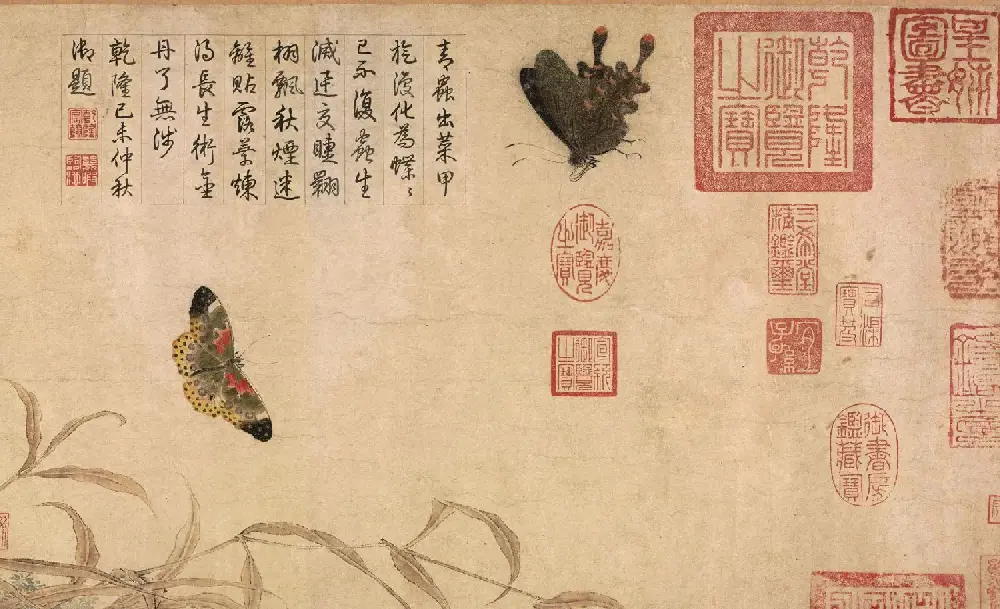 青蟲出菜甲
旋復化為蝶〻
已不復蟲生
滅速交睫翾
栩飄秋煙迷
離貼露葉煉
得長生術金
丹了無涉
乾隆己未仲秋
御題
皇姊圖書
乾隆御覽之寶
嘉慶御覽之寶
宣統御覽之寶
三希堂精鑑璽
宜子孫
石渠寶笈
御書房鑑藏寶